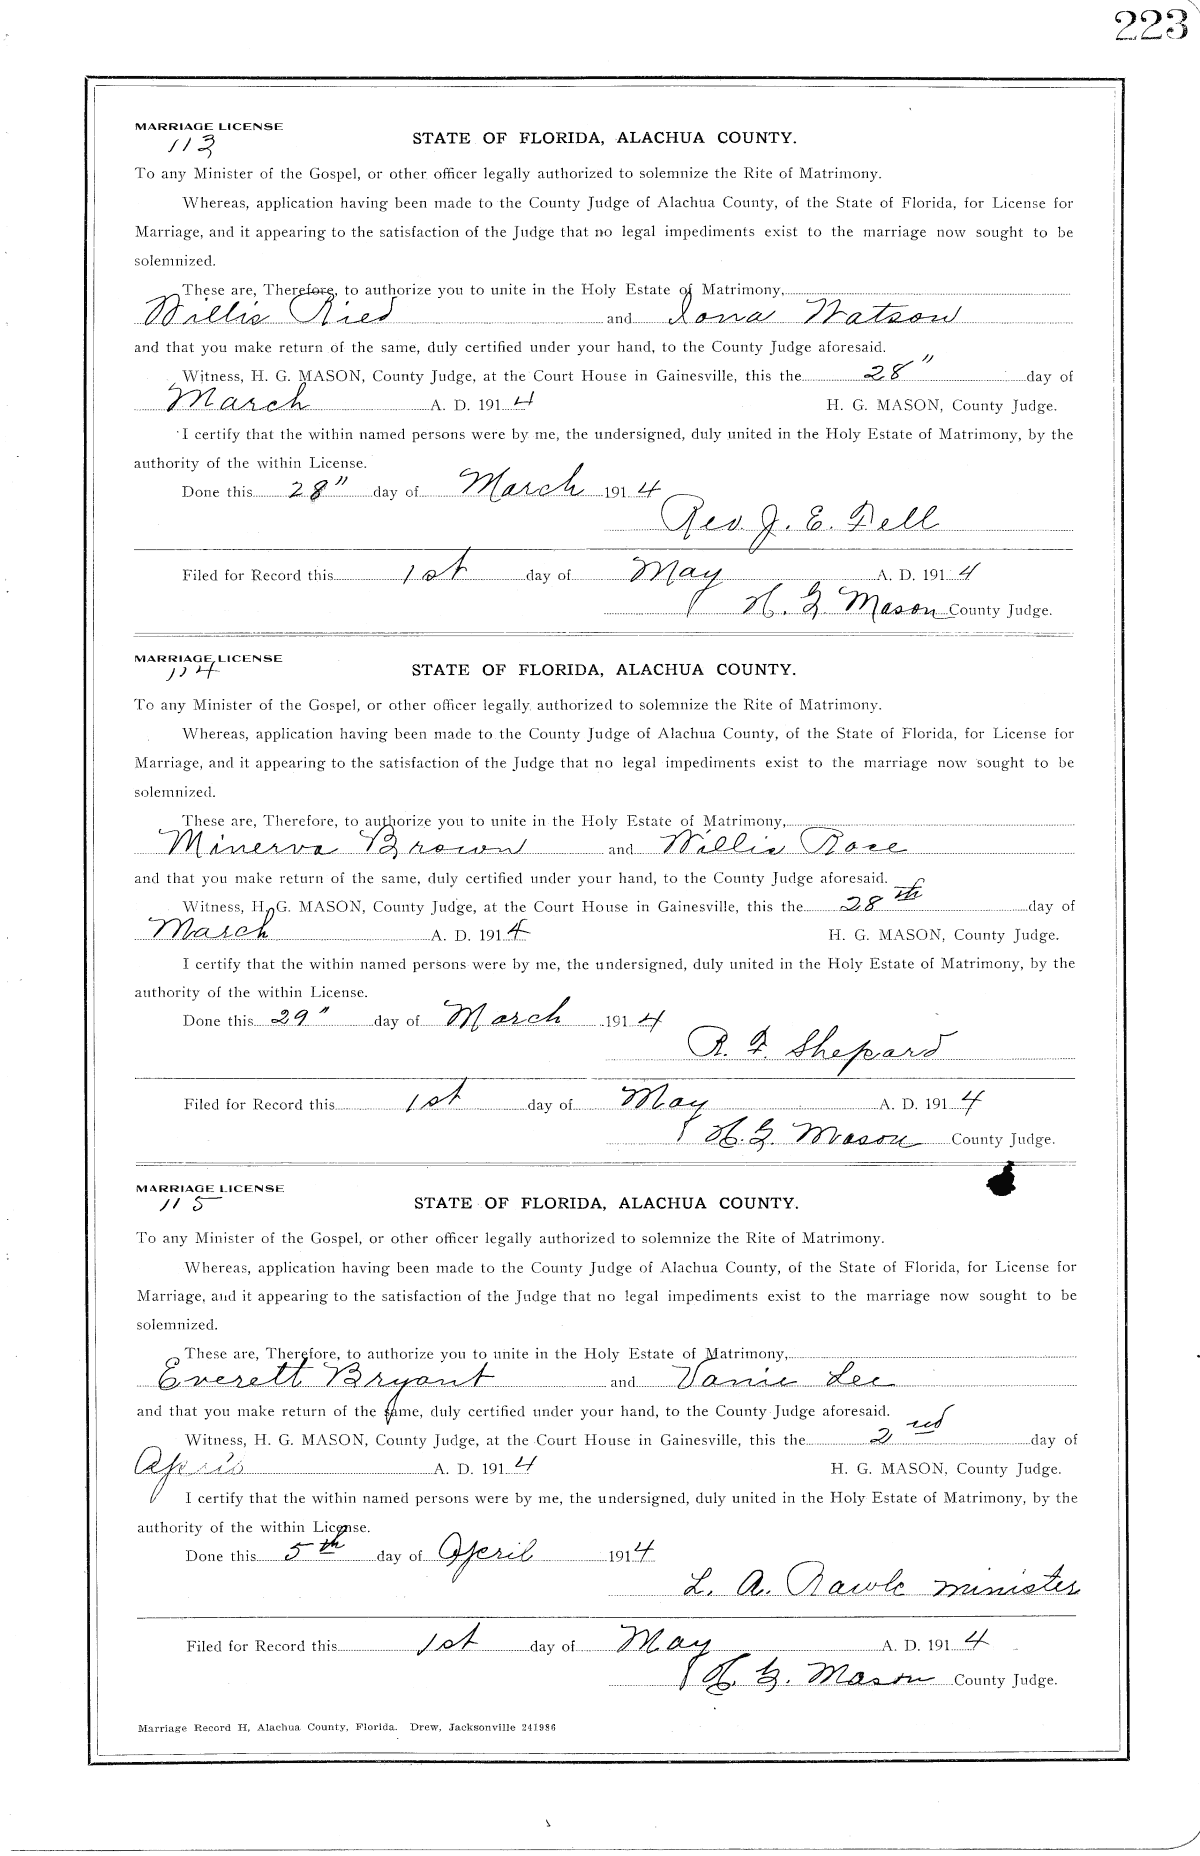 223
MARRIAGE LICENSE
113
STATE OF FLORIDA, ALACHUA COUNTY.
To any Minister of the Gospel, or other officer legally authorized to solemnize the Rite of Matrimony.
Whereas, application having been made to the County Judge of Alachua County, of the State of Florida, for License for
Marriage, and it appearing to the satisfaction of the Judge that no legal impediments exist to the marriage now sought to be
solemnized.
These are, Therefore, to authorize you to unite in the Holy Estate of Matrimony,
Willis Ried and Iona Watson
and that you make return of the same, duly certified under your hand, to the County Judge aforesaid.
Witness, H. G. MASON, County Judge, at the Court House in Gainesville, this the 28" day of
March A. D. 1914 H. G. MASON, County Judge.
I certify that the within named persons were by me, the undersigned, duly united in the Holy Estate of Matrimony, by the
authority of the within License.
Done this 28" day of March 1914
Rev. J. E. Dell
Filed for Record this 1st day of May A. D. 1914
H. G Mason County Judge.
MARRIAGE LICENSE
114
STATE OF FLORIDA, ALACHUA COUNTY.
To any Minister of the Gospel, or other officer legally authorized to solemnize the Rite of Matrimony.
Whereas, application having been made to the County Judge of Alachua County, of the State of Florida, for License for
Marriage, and it appearing to the satisfaction of the Judge that no legal impediments exist to the marriage now sought to be
solemnized.
These are, Therefore, to authorize you to unite in the Holy Estate of Matrimony,
Minerva Brown and Willis Rose
and that you make return of the same, duly certified under your hand, to the County Judge aforesaid.
Witness, H. G. MASON, County Judge, at the Court House in Gainesville, this the 28th day of
March A. D. 1914 H. G. MASON, County Judge.
I certify that the within named persons were by me, the undersigned, duly united in the Holy Estate of Matrimony, by the
authority of the within License.
Done this 29" day of March 1914
R. F. Shepard
Filed for Record this 1st day of May A. D. 1914
H. G. Mason County Judge.
MARRIAGE LICENSE
115
STATE OF FLORIDA, ALACHUA COUNTY.
To any Minister of the Gospel, or other officer legally authorized to solemnize the Rite of Matrimony.
Whereas, application having been made to the County Judge of Alachua County, of the State of Florida, for License for
Marriage, and it appearing to the satisfaction of the Judge that no legal impediments exist to the marriage now sought to be
solemnized.
These are, Therefore, to authorize you to unite in the Holy Estate of Matrimony,
Everett Bryant and Vanie Lee
and that you make return of the same, duly certified under your hand, to the County Judge aforesaid.
Witness, H. G. MASON, County Judge, at the Court House in Gainesville, this the 2nd day of
April A. D. 1914 H. G. MASON, County Judge.
I certify that the within named persons were by me, the undersigned, duly united in the Holy Estate of Matrimony, by the
authority of the within License.
Done this 5th day of April 1914
L. A. Rawls minister
Filed for Record this 1st day of May A. D. 1914
H. G. Mason County Judge.
Marriage Record H, Alachua County, Florida. Drew, Jacksonville 241986